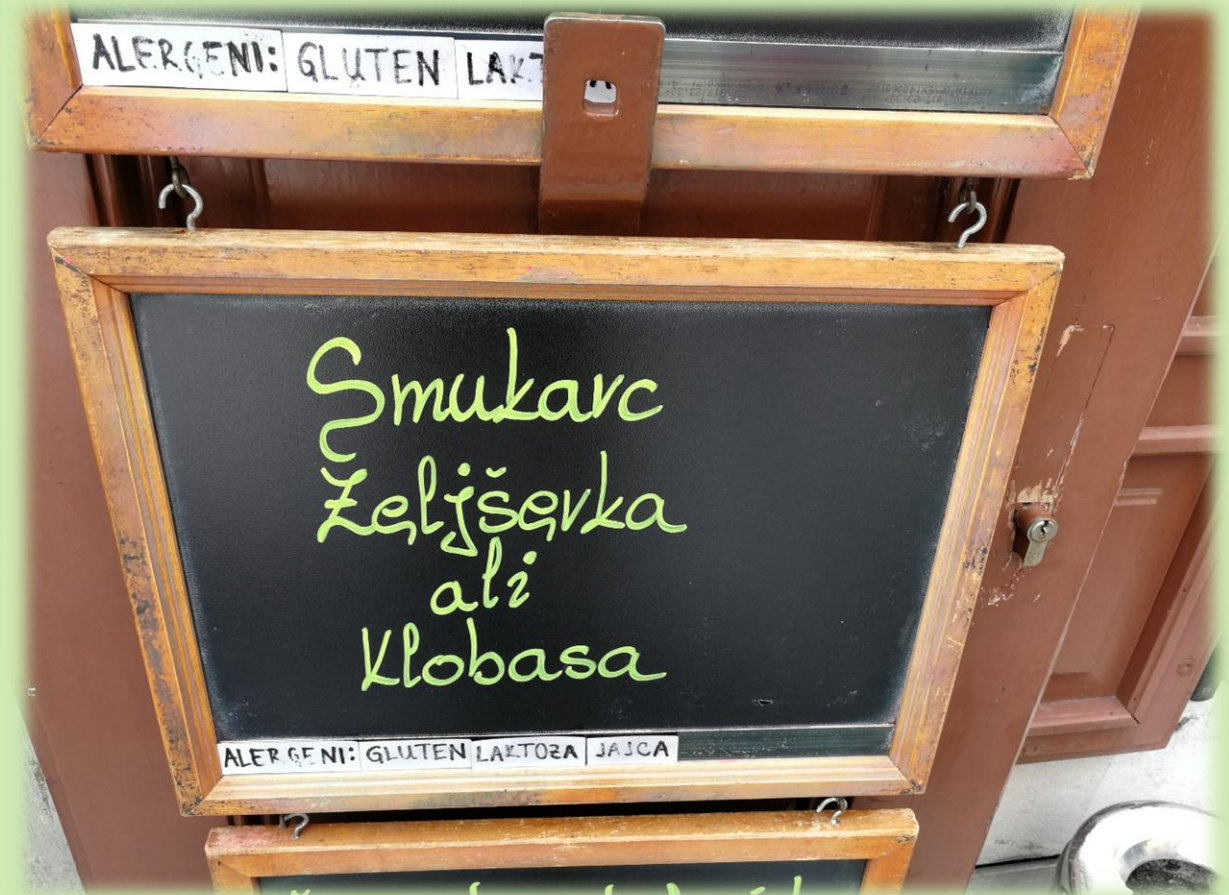 ALERGENI: GLUTEN
Šmukarc
Željševka
ali
Klobasa
ALERGENI: GLUTEN LAKTOZA JAJCA